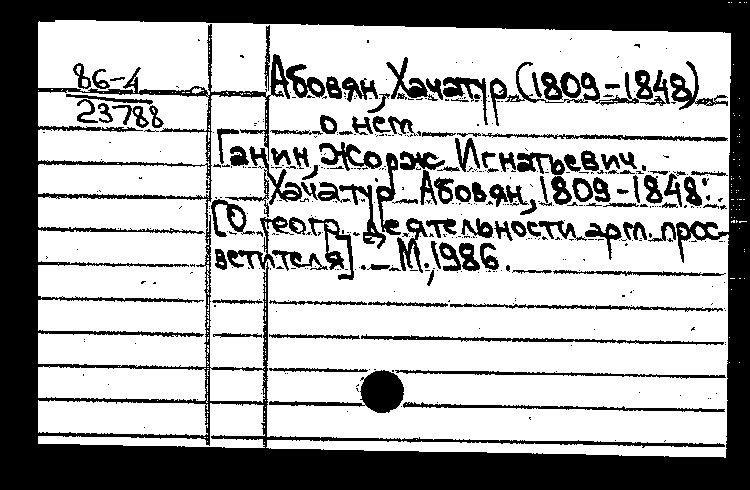 86-4
23788
Абовян, Хачатур (1809-1848)
о нем
Ганин, Жорж Игнатьевич.
Хачатур Абовян, 1809-1848:
[О геогр. деятельности арм. прос-
ветителя]. - М., 1986.